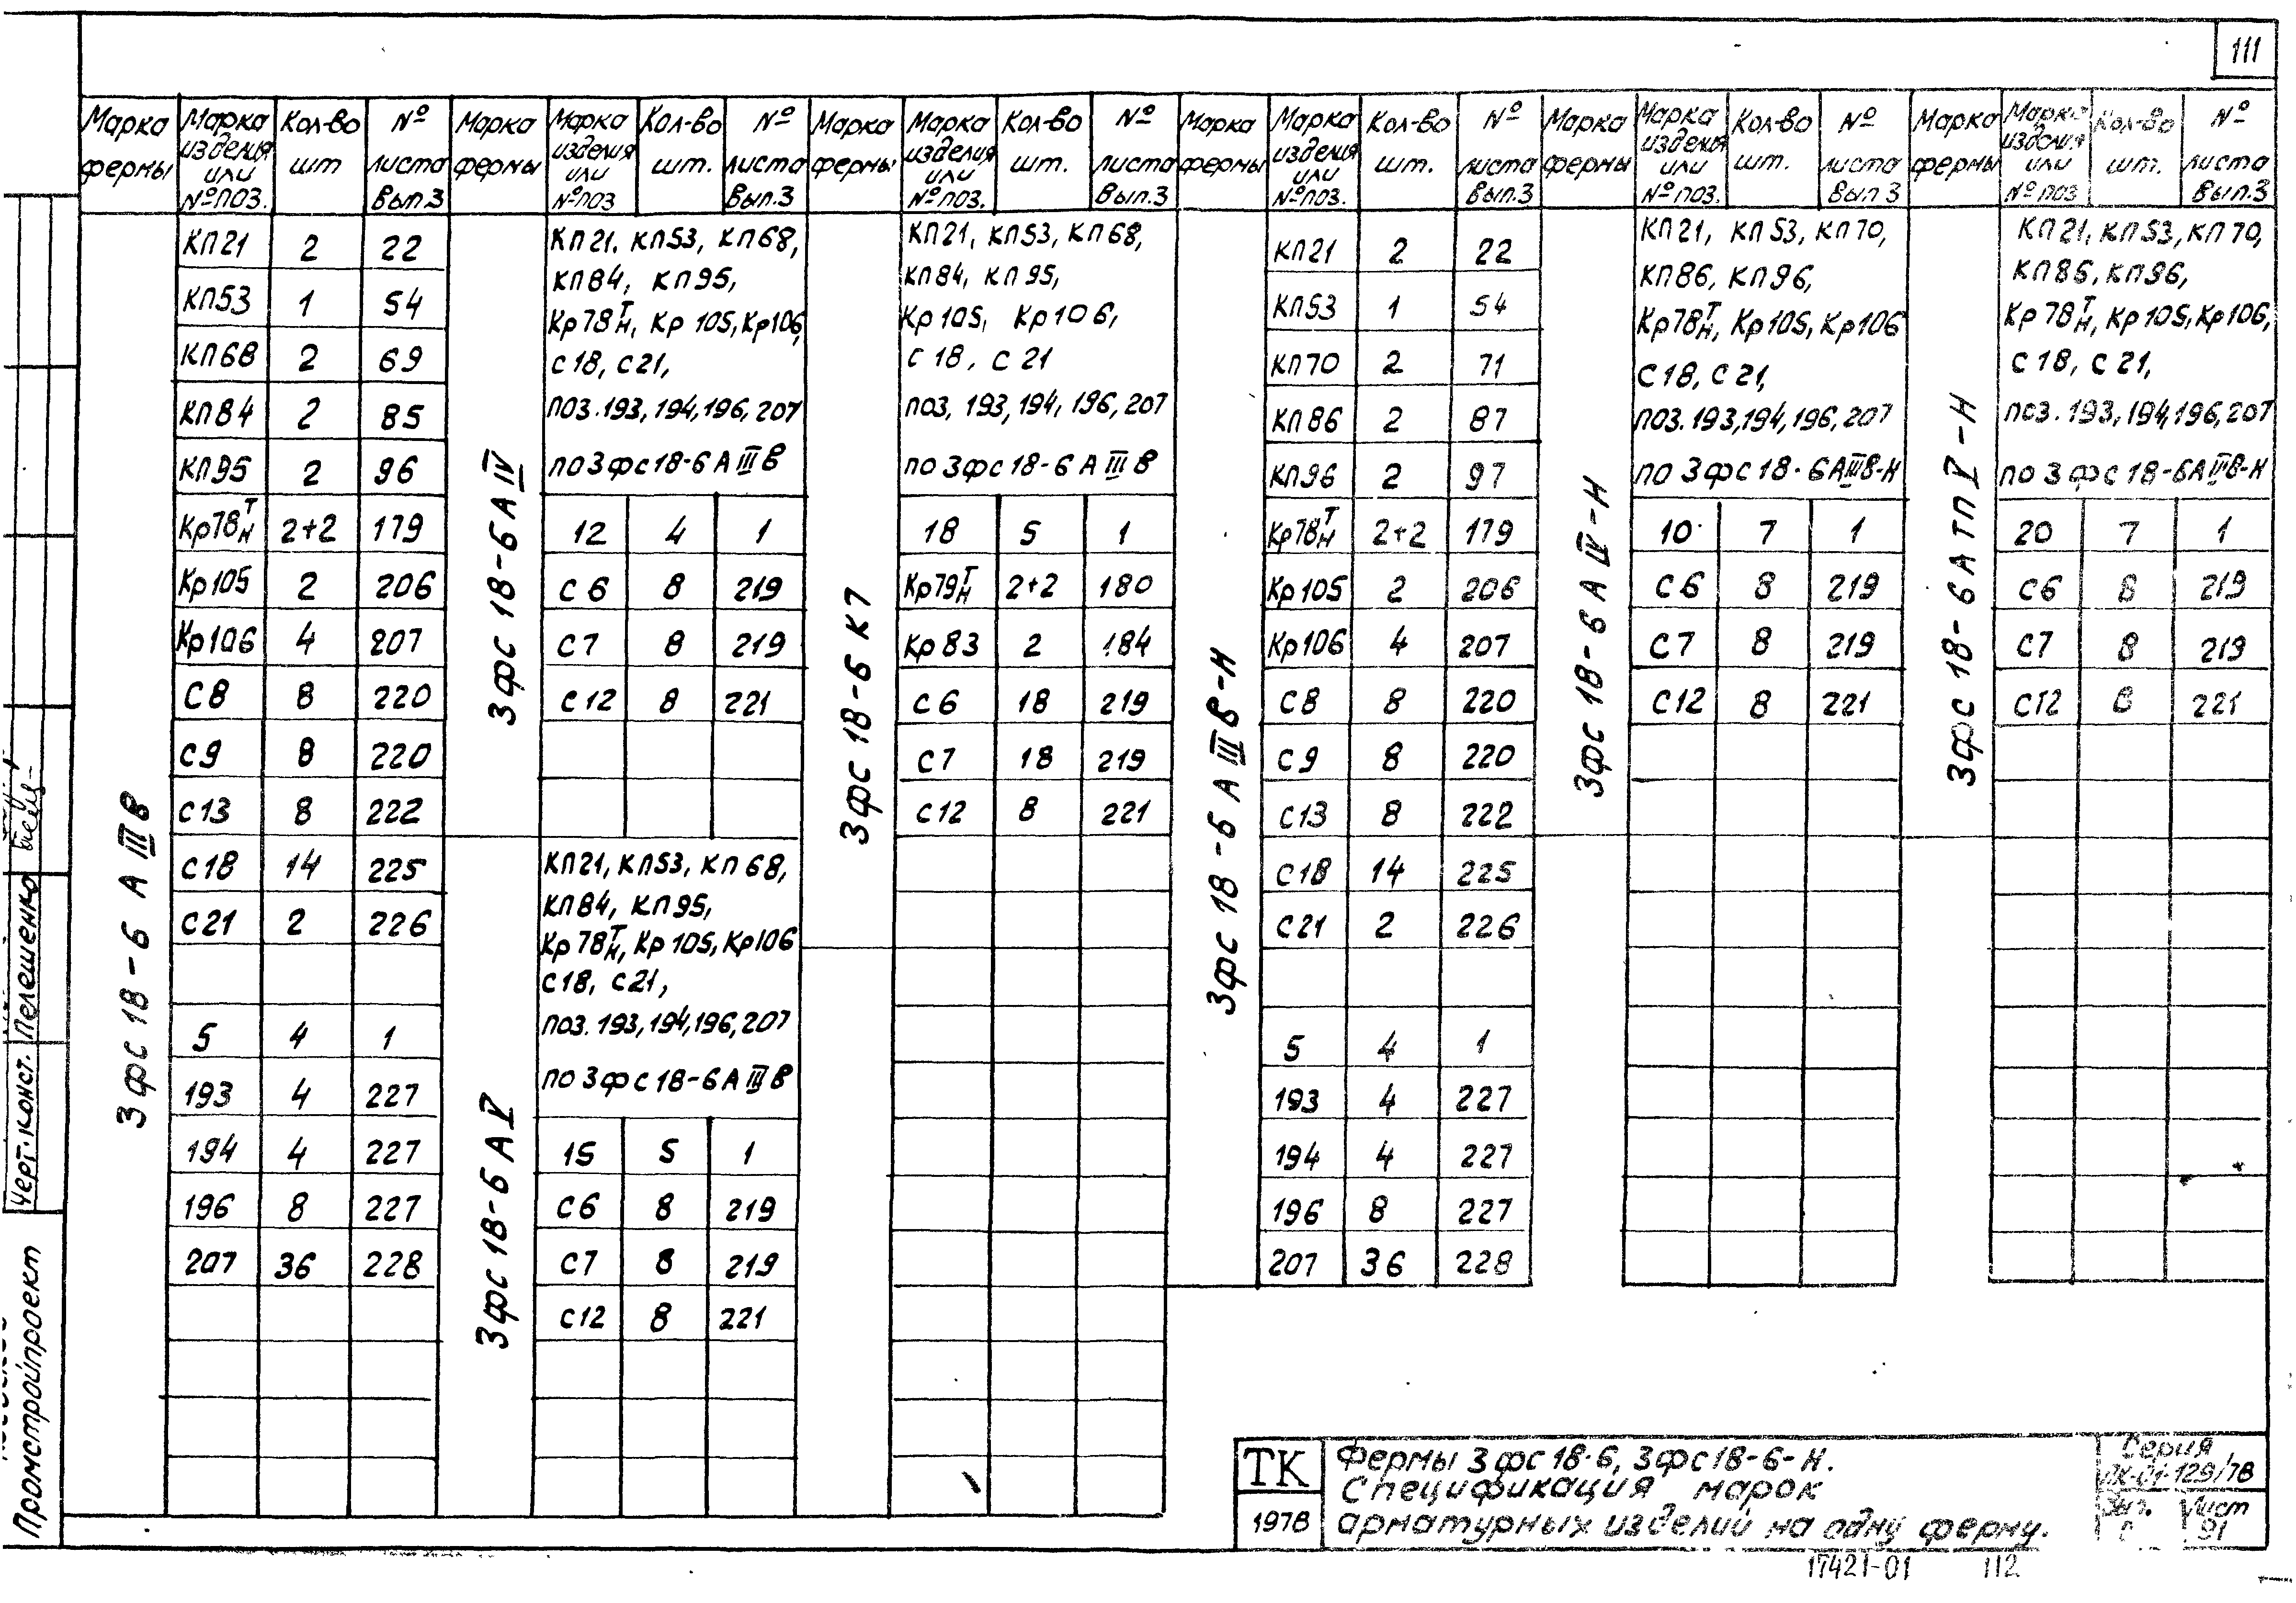 111
Марка фермы | Марка изделия или №поз. | Кол-во шт | № листа Вып.3 | Марка фермы | Марка изделия или №поз | Кол-во шт. | № листа Вып.3 | Марка фермы | Марка изделия или №поз. | Кол-во шт. | № листа Вып.3 | Марка фермы | Марка изделия или №поз. | Кол-во шт. | № листа Вып.3 | Марка фермы | Марка изделия или №поз. | Кол-во шт. | № листа Вып 3 | Марка фермы | Марка изделия или №поз | Кол-во шт. | № листа Вып.3
3фс 18-6 А IIIв
КП21 2 22
КП53 1 54
КП68 2 69
КП84 2 85
КП95 2 96
Кр78 Т/Н 2+2 179
Кр105 2 206
Кр106 4 207
С8 8 220
С9 8 220
С13 8 222
С18 14 225
С21 2 226
5 4 1
193 4 227
194 4 227
196 8 227
207 36 228
3фс 18-6 А IV
КП21, КП53, КП68,
КП84, КП95,
Кр78 Т/Н, Кр 105, Кр106,
С18, С21,
поз.193,194,196,207
по 3фс18-6 А III в
12 4 1
С6 8 219
С7 8 219
С12 8 221
3фс 18-6 А V
КП21, КП53, КП68,
КП84, КП95,
Кр78 Т/Н, Кр105, Кр106
С18, С21,
поз.193,194,196,207
по 3фс18-6 А III в
15 5 1
С6 8 219
С7 8 219
С12 8 221
3фс 18-6 К7
КП21, КП53, КП68,
КП84, КП95,
Кр105, Кр106,
С18, С21
поз, 193,194, 196,207
по 3фс18-6 А III в
18 5 1
Кр79 Т/Н 2+2 180
Кр83 2 184
С6 18 219
С7 18 219
С12 8 221
3фс 18-6 А IIIв-Н
КП21 2 22
КП53 1 54
КП70 2 71
КП86 2 87
КП96 2 97
Кр78 Т/Н 2+2 179
Кр105 2 206
Кр106 4 207
С8 8 220
С9 8 220
С13 8 222
С18 14 225
С21 2 226
5 4 1
193 4 227
194 4 227
196 8 227
207 36 228
3фс 18-6 А IV-Н
КП21, КП53, КП70,
КП86, КП96,
Кр78 Т/Н, Кр105, Кр106
С18, С21,
поз.193,194,196,207
по 3фс18-6АIIIв-Н
10 7 1
С6 8 219
С7 8 219
С12 8 221
3фс 18-6АТП V-Н
КП21, КП53, КП70,
КП86, КП96,
Кр78 Т/Н, Кр105, Кр106,
С18, С21,
поз.193,194,196,207
по 3фс18-6АIIIв-Н
20 7 1
С6 8 219
С7 8 219
С12 8 221
Черт.конст. Пелешенко
Промстройпроект
ТК
1978
Фермы 3фс18-6, 3фс18-6-Н.
Спецификация марок
арматурных изделий на одну ферму.
Серия
ПК-01-129/78
Вып. Лист
91
17421-01 112